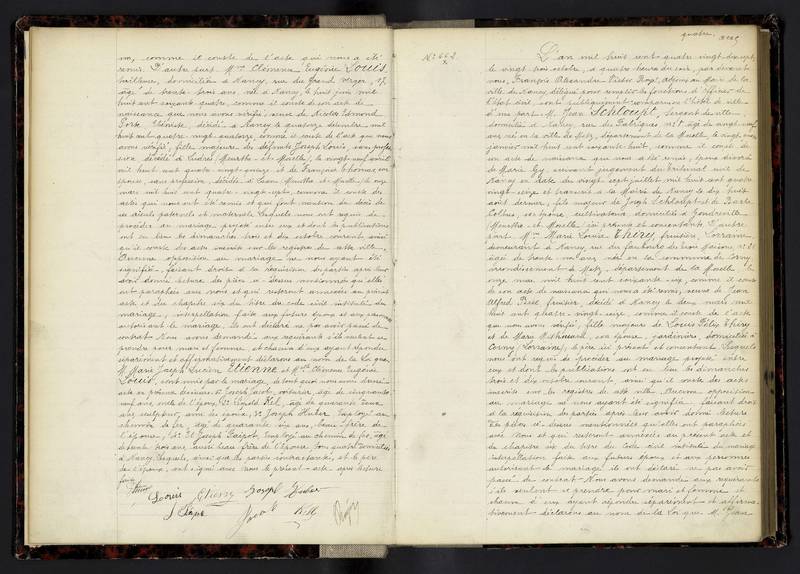 no, comme il conste de l'acte qui nous a été
remis. D'autre part Mme Clémence Eugénie Louis,
tailleuse, domiciliée à Nancy, rue du Grand Verger, 27,
âgée de trente trois ans, née à Nancy, le huit juin mil
huit cent soixante quatre, comme il conste de son acte de
naissance que nous avons vérifié, veuve de Nicolas Edmond
décédé à Nancy le quatorze décembre mil
huit cent quatre-vingt quatorze, comme il conste de l'acte que nous
avons vérifié, fille majeure des défunts Joseph Louis, sans profes
sion décédé à Ludres (Meurthe-et-Moselle), le vingt-neuf avril
mil huit cent quatre-vingt-quinze et de Françoise son
épouse, sans profession, décédée à (Meurthe-et-Moselle) le onze
mars mil huit cent quatre-vingt-sept, comme il conste des
actes qui nous ont été remis et qui font mention du décès de
ses aïeuls paternels et maternels. Lesquels nous ont requis de
procéder au mariage projeté entre eux et dont les publications
ont eu lieu les dimanches trois et dix octobre courant ainsi
qu'il conste des actes inscrits sur les registres de cette ville.
Aucune opposition au mariage ne nous ayant été
signifiée, faisant droit à la réquisition des parties après leur
avoir donné lecture des pièces ci-dessus mentionnées qu'elles
ont paraphées avec nous et qui resteront annexées au présent
acte et du chapitre six du titre du code civil intitulé du
mariage, interpellation faite aux futurs époux et aux personnes
autorisant le mariage, ils ont déclaré ne pas avoir passé de
contrat. Nous avons demandé aux requérants s'ils veulent se
prendre pour mari et femme, et chacun d'eux ayant répondu
séparément et affirmativement déclarons au nom de la Loi que
M. Marie Joseph Lucien Etienne et Mme Clémence Eugénie
Louis, sont unis par le mariage, de tout quoi nous avons dressé
acte en présence de messieurs 1° Joseph Jacob, voiturier, âgé de cinquante
neuf ans, oncle de l'époux, 2° Léopold Kill, âgé de quarante deux
ans, sculpteur, ami des époux, 3° Joseph Huber, employé au
chemin de fer, âgé de quarante six ans, beau-frère de
l'épouse, 4° et Joseph employé au chemin de fer, âgé
de trente trois ans, aussi beau frère de l'épouse, tous quatre domiciliés
à Nancy, lesquels, ainsi que les parties contractantes, et le père
de l'époux, ont signé avec nous le présent acte, après lecture
faite.
Louis Etienne Joseph Huber
Jacob Kill
quatre
N° 662
L'an mil huit cent quatre vingt dix sept,
le vingt trois octobre, à quatre heures du soir, par devant
nous, François Alexandre Victor adjoint au Maire de la
ville de Nancy délégué pour remplir les fonctions d'officier de
l'état civil sont publiquement comparus à l'hôtel de ville
d'une part M. Jean Schloupt, sergent de ville,
domicilié à Nancy, rue des Fabriques n° 2 âgé de vingt neuf
ans, né en la ville de Metz, département de la Moselle, le vingt cinq
janvier mil huit cent soixante huit, comme il conste de
son acte de naissance que nous a été remis, époux divorcé
de Marie suivant jugement du tribunal civil de
Nancy en date du vingt sept juillet mil huit cent quatre
vingt-seize et transcrit à la Mairie de Nancy le dix huit
août dernier, fils majeur de Joseph Schloupt et de Barbe
son épouse, cultivateurs, domiciliés à Gondreville
(Meurthe-et-Moselle) ici présents et consentants. D'autre
part Mme Marie Louise Thiéry, fruitière,
demeurant à Nancy, rue du faubourg des trois Maisons, n° 21
âgée de trente ans, née en la commune de Corny,
arrondissement de Metz, département de la Moselle, le
onze mai mil huit cent soixante-six, comme il conste
de son acte de naissance que nous a été remis, veuve de Jean
Alfred fruitier, décédé à Nancy le deux mars mil
huit cent quatre-vingt-seize, comme il conste de l'acte
que nous avons vérifié, fille majeure de Louis Félix Thiéry
et de Mary son épouse, jardiniers, domiciliés à
Corny (Lorraine), le père ici présent et consentant. Lesquels
nous ont requis de procéder au mariage projeté entre
eux et dont les publications ont eu lieu les dimanches
trois et dix octobre courant ainsi qu'il conste des actes
inscrits sur les registres de cette ville. Aucune opposition
au mariage ne nous ayant été signifiée, faisant droit
à la réquisition des parties après leur avoir donné lecture
des pièces ci-dessus mentionnées qu'elles ont paraphées
avec nous et qui resteront annexées au présent acte et du
chapitre six du titre du code civil intitulé du mariage
interpellation faite aux futurs époux et aux personnes
autorisant le mariage ils ont déclaré ne pas avoir
passé de contrat. Nous avons demandé aux requérants
s'ils veulent se prendre pour mari et femme et
chacun d'eux ayant répondu séparément et affirma-
tivement déclarons au nom de la Loi que M. Jean